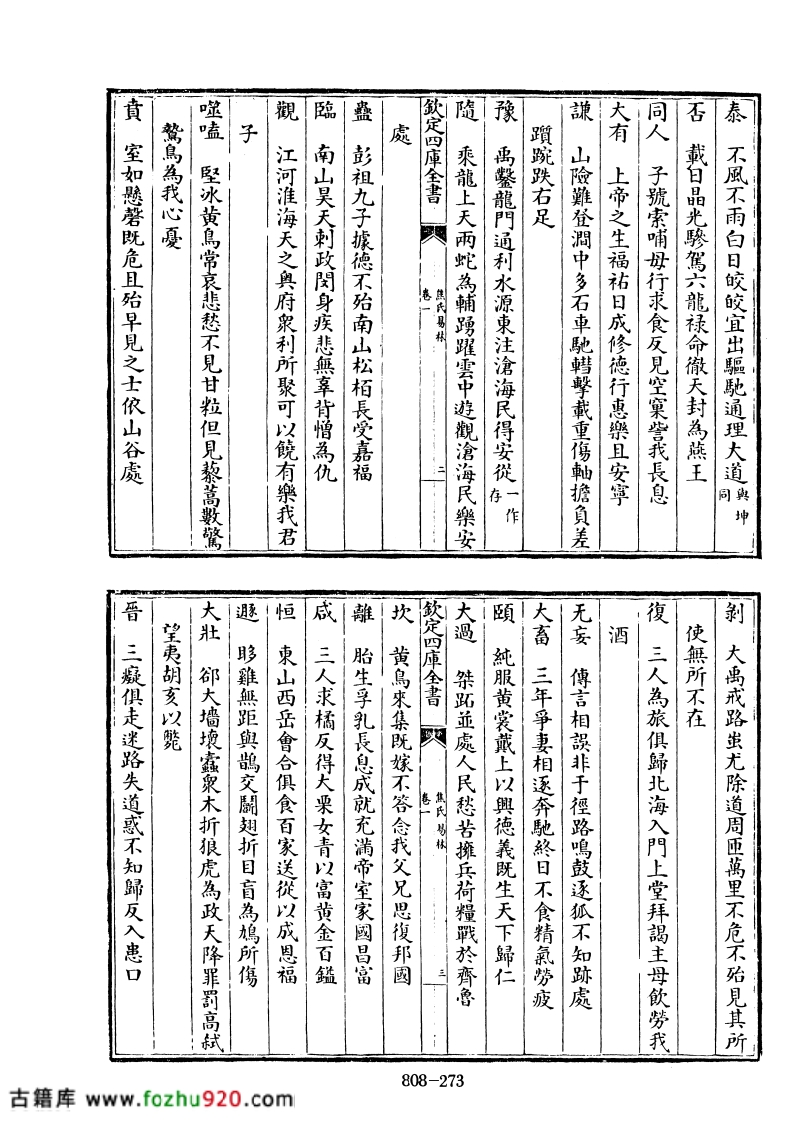 泰 不風不雨白日皎皎宜出驅馳通理大道與坤同
否 載日晶光驂駕六龍禄命徹天封為燕王
同人 子號索哺母行求食反見空窠訾我長息
大有 上帝之生福祐日成修德行惠樂且安寧
謙 山險難登澗中多石車馳轊擊載重傷軸擔負差
躓踠跌右足
豫 禹鑿龍門通利水源東注滄海民得安從一作存
隨 乘龍上天兩蛇為輔踴躍雲中遊觀滄海民樂安
欽定四庫全書 焦氏易林 卷一 二
處
蠱 彭祖九子據德不殆南山松栢長受嘉福
臨 南山昊天刺政閔身疾悲無辜背憎為仇
觀 江河淮海天之奥府衆利所聚可以饒有樂我君
子
噬嗑 堅冰黄鳥常哀悲愁不見甘粒但見藜蒿數驚
鷙鳥為我心憂
賁 室如懸磬既危且殆早見之士依山谷處
剝 大禹戒路蚩尤除道周匝萬里不危不殆見其所
使無所不在
復 三人為旅俱歸北海入門上堂拜謁主母飲勞我
酒
无妄 傳言相誤非于徑路鳴鼓逐狐不知跡處
大畜 三年爭妻相逐奔馳終日不食精氣勞疲
頤 純服黄裳戴上以興德義既生天下歸仁
大過 桀跖並處人民愁苦擁兵荷糧戰於齊魯
欽定四庫全書 焦氏易林 卷一 三
坎 黄鳥來集既嫁不答念我父兄思復邦國
離 胎生孚乳長息成就充滿帝室家國昌富
咸 三人求橘反得大栗女青以富黄金百鎰
恒 東山西岳會合俱食百家送從以成恩福
遯 眵雞無距與鵲交鬬翅折目盲為鳩所傷
大壯 郤大墻壞蠹衆木折狼虎為政天降罪罰高弑
望夷胡亥以斃
晉 三癡俱走迷路失道惑不知歸反入患口
808-273
古籍库 www.fozhu920.com